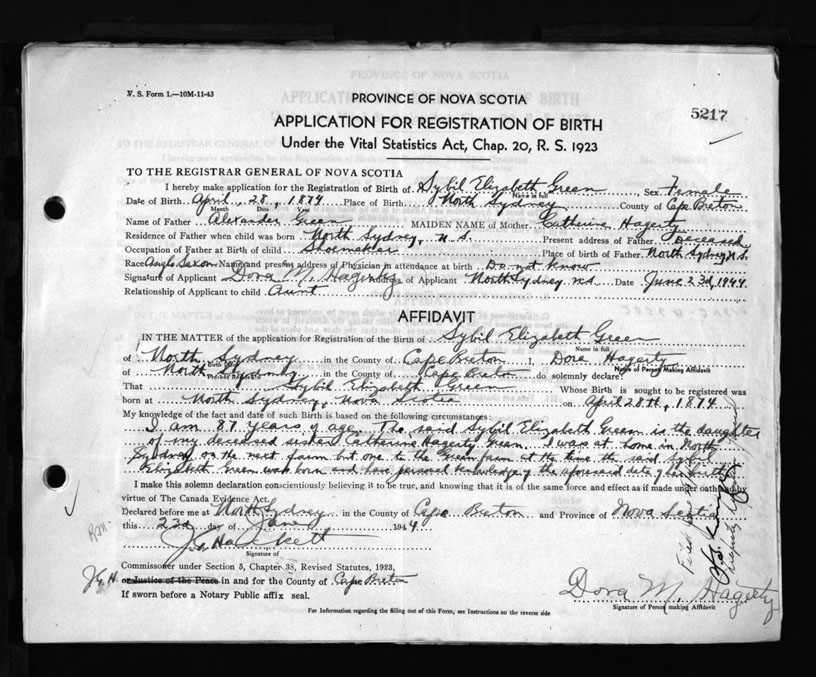 N. S. Form 1.—10M-11-43
PROVINCE OF NOVA SCOTIA
5217
APPLICATION FOR REGISTRATION OF BIRTH
Under the Vital Statistics Act, Chap. 20, R. S. 1923
TO THE REGISTRAR GENERAL OF NOVA SCOTIA
I hereby make application for the Registration of Birth of Sybil Elizabeth Green Sex Female
Name in full
Date of Birth April 28, 1874 Place of Birth North Sydney County of Cape Breton
Month Day Year
Name of Father Alexander Green MAIDEN NAME of Mother Catherine Hagerty
Residence of Father when child was born North Sydney, N.S. Present address of Father Deceased
Occupation of Father at Birth of child Shoemaker Place of birth of Father North Sydney N.S.
Race Anglo Saxon Name and present address of Physician in attendance at birth Do not know
Signature of Applicant Dora M. Hagerty Address of Applicant North Sydney Date June 22d, 1944
Relationship of Applicant to child Aunt
AFFIDAVIT
IN THE MATTER of the application for Registration of the Birth of Sybil Elizabeth Green
Name in full
of North Sydney in the County of Cape Breton I, Dora Hagerty
Name of Person Making Affidavit
of North Sydney in the County of Cape Breton do solemnly declare:
That Sybil Elizabeth Green Whose Birth is sought to be registered was
born at North Sydney, Nova Scotia on April 28th, 1874
My knowledge of the fact and date of such Birth is based on the following circumstances:
I am 87 years of age. The said Sybil Elizabeth Green is the daughter
of my deceased sister Catherine Hagerty Green. I was at home in North
Sydney on the next farm but one to the Green farm at the time the said Sybil
Elizabeth Green was born and have personal knowledge of the aforesaid date of her birth
I make this solemn declaration conscientiously believing it to be true, and knowing that it is of the same force and effect as if made under oath by
virtue of The Canada Evidence Act.
Declared before me at North Sydney in the County of Cape Breton and Province of Nova Scotia
this 22d day of June 1944
J. G. Hackett
Signature of
Commissioner under Section 5, Chapter 38, Revised Statutes, 1923,
J G. H. or Justice of the Peace in and for the County of Cape Breton
If sworn before a Notary Public affix seal.
Dora M. Hagerty
Signature of Person making Affidavit
For Information regarding the filling out of this Form, see Instructions on the reverse side